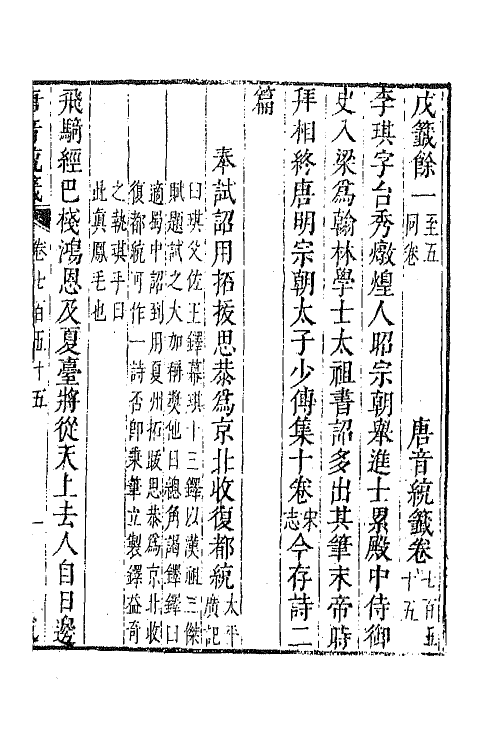 戊籤餘一至五同卷 唐音統籤卷七百五十五
李琪字台秀燉煌人昭宗朝舉進士累殿中侍御
史入梁爲翰林學士太祖書詔多出其筆末帝時
拜相終唐明宗朝太子少傅集十卷宋志今存詩二
篇
奉試詔用拓拔思恭爲京北收復都統太平廣記
曰琪父佐王鐸幕琪十三鐸以漢祖三傑
賦題試之大加稱奬他日總角謁鐸鐸曰
適蜀中詔到用夏州拓跋思恭爲京北收
復都統可作一詩否卽秉筆立製鐸益奇
之執琪手曰
此眞鳳毛也
飛騎經巴棧鴻恩及夏臺將從天上去人自日邊
唐音統籤 卷七百五十五 一